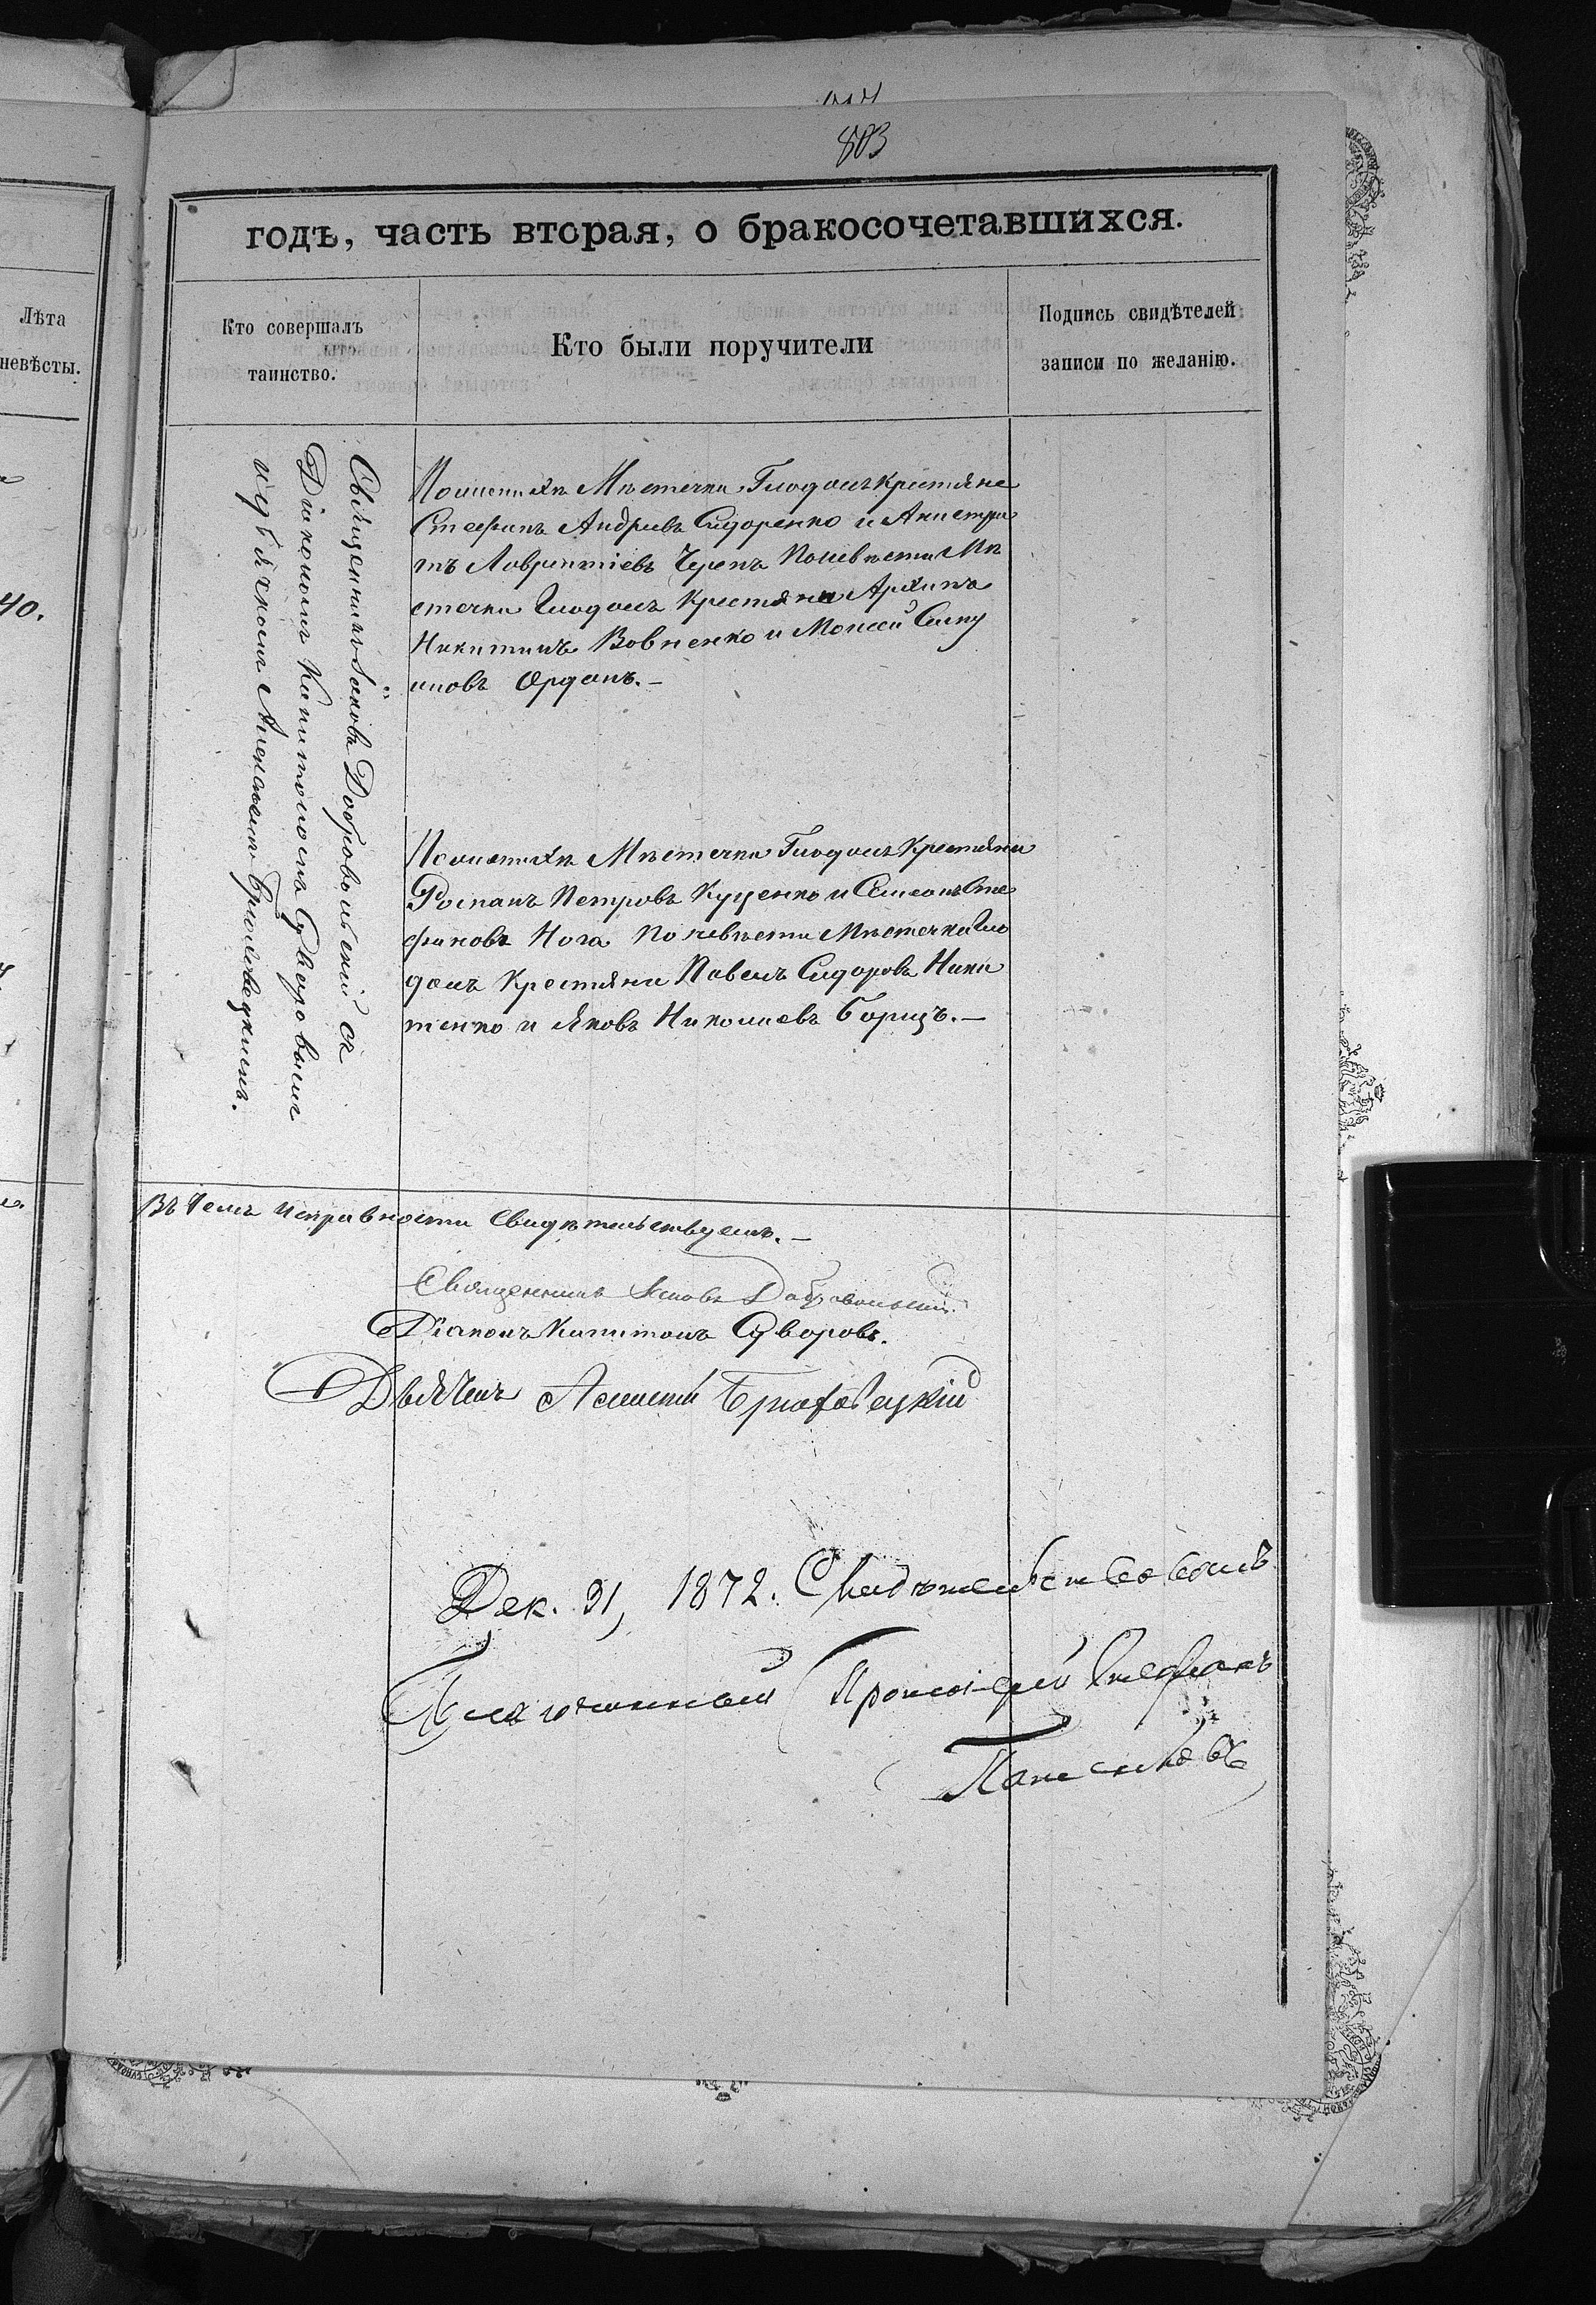 803
годѣ, часть вторая, о бракосочетавшихся.
Лѣта
невѣсты.
Кто совершалъ
таинство.
Кто были поручители
Подпись свидѣтелей
записи по желанію.
40.
Священникъ Іаковъ Добровольскій съ
Діакономъ Капитономъ Суворовымъ
и дьячкомъ Алексѣемъ Брюховецкимъ.
По женихѣ Мѣстечка Глодосъ крестяне
Стефанъ Андріевъ Сидоренко и Анистра
тъ Лаврентіевъ Черепъ По невѣсти Мѣ
стечка Глодосъ Крестяне Архипъ
Никитинъ Вовненко и Моисей Симу
иловъ Орданъ.—
По женихѣ Мѣстечка Глодосъ Крестяни
Романъ Петровъ Куценко и Симеонъ Сте
фановъ Нога По невѣсти Мѣстечка Гло
досъ Крестяни Павелъ Сидоровъ Ники
тенко и Яковъ Николаевъ Борщъ.—
Въ чемъ исправности Свидѣтельствуемъ.—
Священникъ Іаковъ Добровольскій.
Діаконъ Капитонъ Суворовъ.
Дьячекъ Алексѣй Брюховецкій
Дек. 31, 1872. Свидѣтельствовалъ
Благочинный Протоіерей Стефанъ